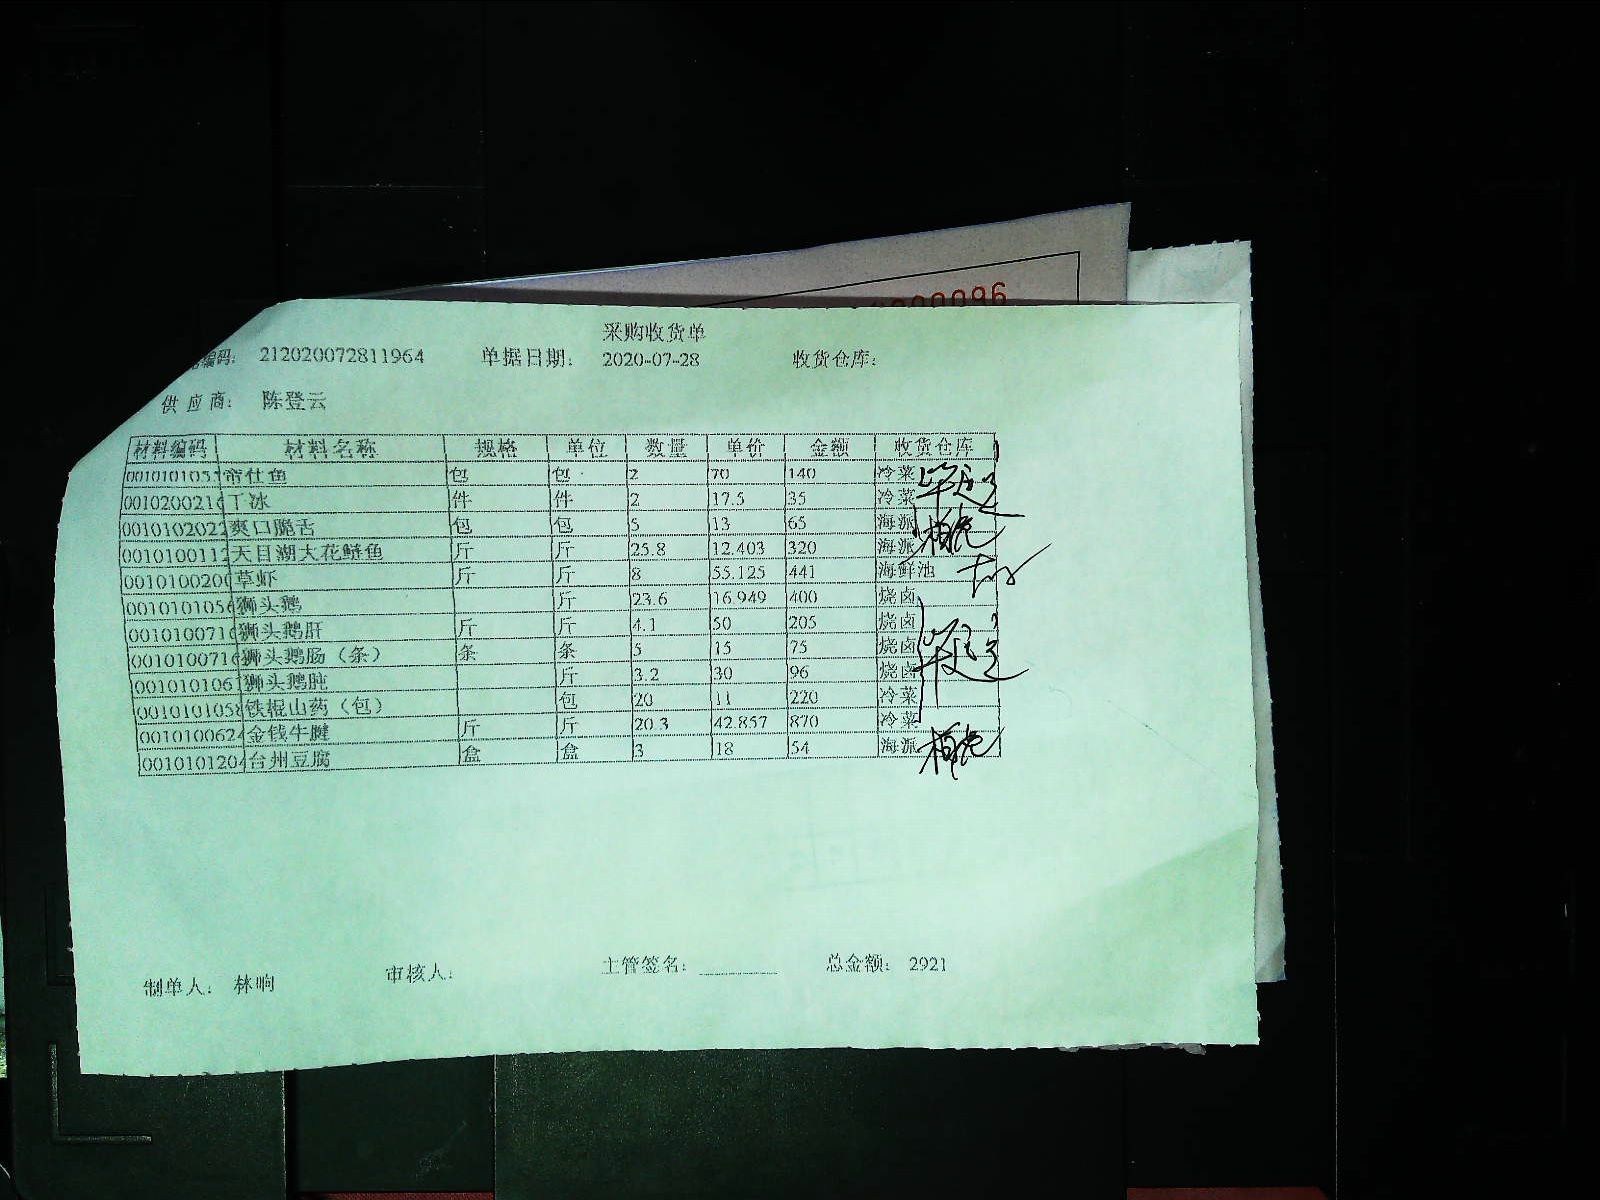 000096
采购收货单
编码： 212020072811964 单据日期： 2020-07-28 收货仓库：
供应商： 陈登云
材料编码 材料名称 规格 单位 数量 单价 金额 收货仓库
001010105 帝仕鱼 包 包 2 70 140 冷菜
001020021 丁冰 件 件 2 17.5 35 冷菜
001010202 爽口脆舌 包 包 5 13 65 海派
001010011 天目湖大花鲢鱼 斤 斤 25.8 12.403 320 海派
001010020 草虾 斤 斤 8 55.125 441 海鲜池
001010105 狮头鹅 斤 23.6 16.949 400 烧卤
001010071 狮头鹅肝 斤 斤 4.1 50 205 烧卤
001010071 狮头鹅肠（条） 条 条 5 15 75 烧卤
001010106 狮头鹅肫 斤 3.2 30 96 烧卤
001010105 铁棍山药（包） 包 20 11 220 冷菜
001010062 金钱牛腱 斤 斤 20.3 42.857 870 冷菜
001010120 台州豆腐 盒 盒 3 18 54 海派
制单人： 林响 审核人： 主管签名： 总金额： 2921